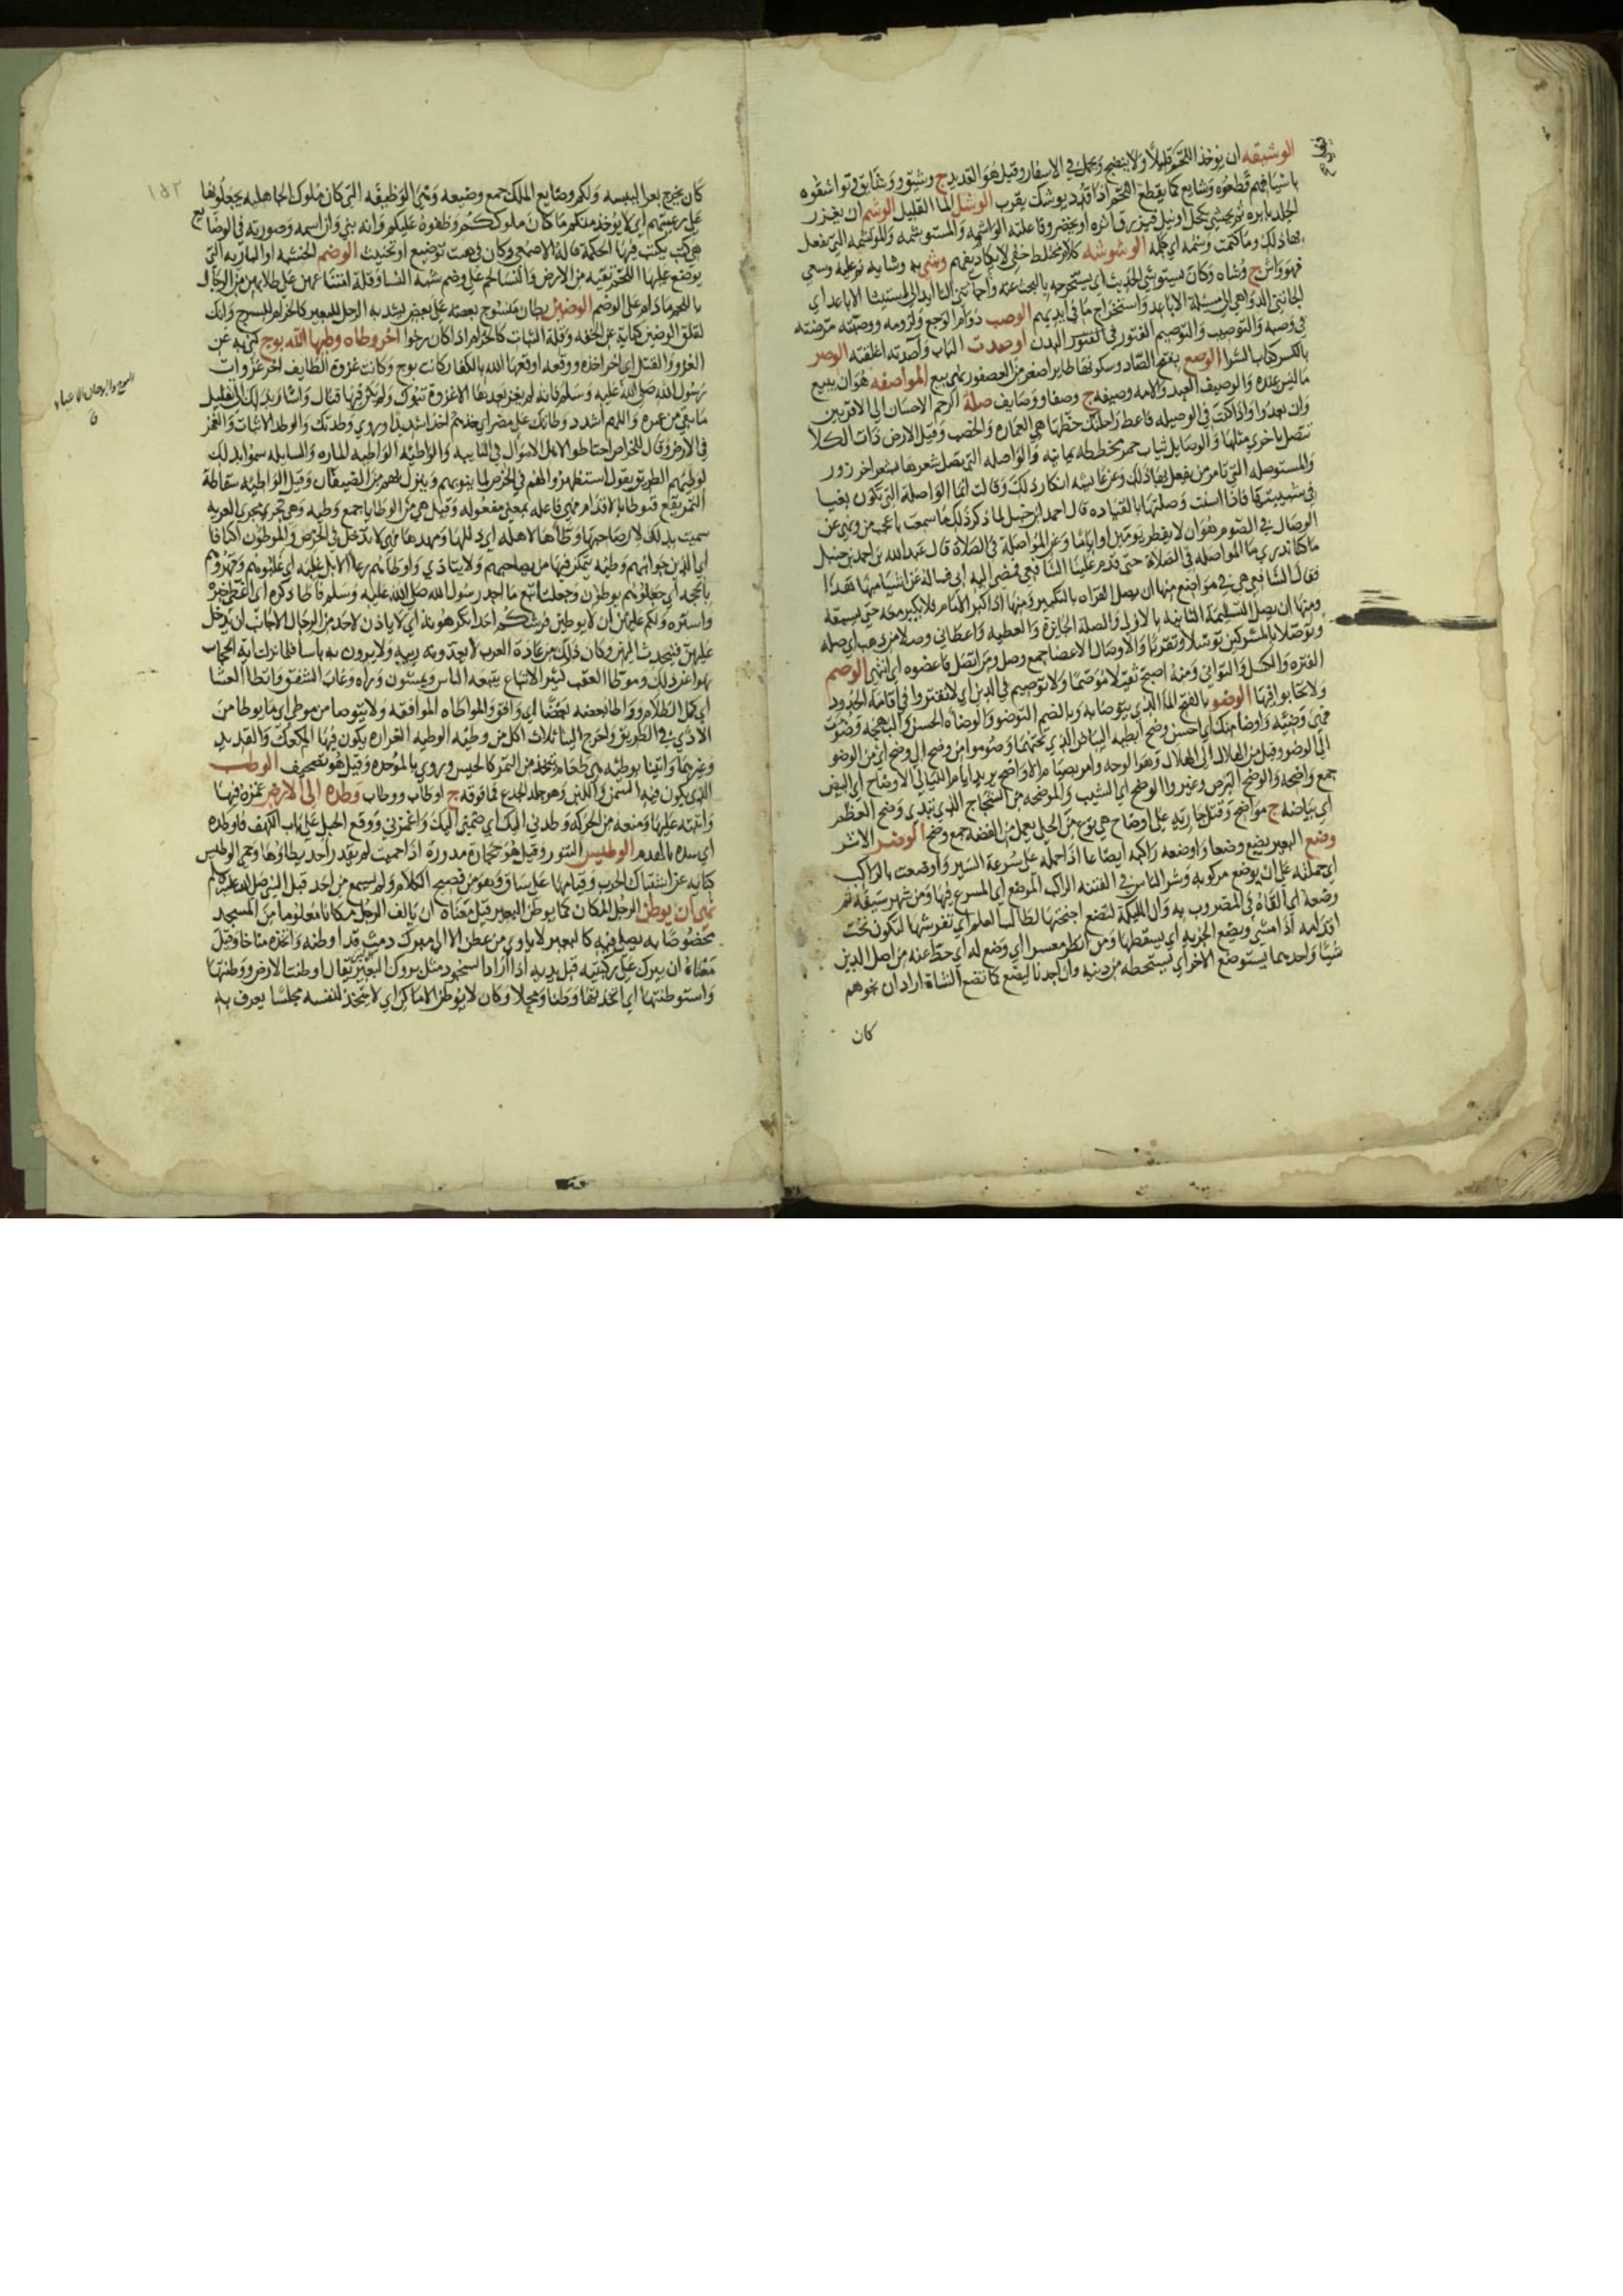 الوشيقه ان يوخذ اللحم قليلاً ولا ينضج ويحمل في الاسفار وقيل هو القديد ج وشيق ووشايق فتواشقوه
باسيافهم قطعوه وشايع كما يقطع اللحم اذا قدد يوشك يقرب الوشل الماا القليل الوشم ان يغرز
الجلد بابره ثم يحشي بكحل اونيل فيزرق اثره او يخضر وفاعلته الواشمه والمستوشمه والموتشمه التي يفعل
بها ذلك وما كتمت وشمه اي كلمه الوشوشه كلام مختلط خفي لا يكاد يفهم وشي به وشايه نم عليه وسعي
فهو واش ج وشاه وكان يستوشي الحديث اي يستخرجه بالبحث عنه
واستخراج ما في ايديهم الوصب دوام الوجع ولزومه ووصبته مرضته
في وصبه والتوصيب والتوصيم الفتور في البدن اوصدت الباب وآصدته اغلقته الوصر
بالكسر كتاب الشرا الوصع بفتح الصاد وسكونها طاير اصغر من العصفور نهي بيع المواصفه هو ان يبيع
ما ليس عنده والوصيف العبد والامه وصيفه ج وصفا ووصايف صلة الرحم الاحسان الي الاقربين
وان بعدوا واذا كنت في الوصيله فاعط راحلتك حظها هي العماره والخصب وقيل الارض ذات الكلا
تتصل باخري مثلها والوصايل ثياب حمر مخططه يمانيه والواصله التي تصل شعرها بشعر اخر زور
والمستوصله التي تامر من يفعل بها ذلك وعن عايشه انكار ذلك وقالت انما الواصلة التي تكون بغيا
في شبيبتها فاذا اسنت وصلتها بالقياده قال احمد ابن حنبل لما ذكر ذلك ما سمعت باعجب من ونهي عن
الوصال في الصوم هو ان لا يفطر يومين او اياما وعن المواصلة في الصلاة قال عبد الله بن احمد بن حنبل
ما كنا ندري ما المواصله في الصلاة حتى قدم علينا الشافعي فمضي اليه ابي فساله عن اشيا منها هذا
فقال الشافعي هي في مواضع منها ان يصل القراه بالتكبير ومنها اذا كبر الامام فلا يكبر معه حتى يسبقه
ومنها ان يصل التسليمة الثانيه بالاولي والصلة الجايزة والعطيه واعطاني وصلا من ذهب اي صله
وتوصلا بالمشركين توسلا وتقربا والاوصال الاعضا جمع وصل ومن اتصل فاعضوه اي انتمي الوصم
الفتره والكسل والتواني ومنه اصبح ثقيلا موصما ولا توصيم في الدين اي لا تفتروا في اقامة الحدود
ولا تحابوا فيها الوضو بالفتح الماا الذي يتوضا به وبالضم التوضو والوضاه الحسن والبهجه وضوت
فهي وضيئه واوضا منك اي احسن وضح ابطيه البياض الذي تحتهما وصوموا من وضح الي وضح اي من الوضو
الي الوضو وقيل من الهلال الي الهلال وهو الوجه وامر بصيام الاواضح يريد ايام الليالي الاوضاح اي البيض
جمع واضحه والوضح البرص وغيروا الوضح اي الشيب والموضحه من الشجاج الذي تبدي وضح العظم
اي بياضه ج مواضح وقتل جارية علي اوضاح هي نوع من الحلي يعمل من الفضه جمع وضح الوضر الاثر
وضع البعير يضع وضعا واوضعه راكبه ايضاعا اذا حمله علي سرعة السير واوضعت بالراكب
اي حملته علي ان يوضع مركوبه وشر الناس في الفتنه الراكب الموضع اي المسرع فيها ومن شهر سيفه ثم
وضعه اي القاه في المضروب به وان المليكه لتضع اجنحتها لطالب العلم اي تفرشها لتكون تحت
اقدامه اذا مشي ويضع الجزيه اي يسقطها ومن انظر معسرا اي وضع له اي حط عنه من اصل الدين
شيا واحدهما يستوضع الاخر اي يستحطه من دينه وان احدنا ليضع كما تضع الشاة اراد ان نجوهم
كان
كان يخرج بعرا ليبسه ولكم وضايع الملك جمع وضيعه وهي الوظيفه التي كان ملوك الجاهليه يجعلونها
علي رعيتهم اي لا يوخذ منكم ما كان ملوككم وظفوه عليكم وانه نبي وان اسمه وصورته في الوضايع
هي كتب يكتب فيها الحكمة قاله الاصمعي وكان في هيت توضيع او تخنيث الوضم الخشبه او الباريه التي
يوضع عليها اللحم تقيه من الارض والنسا لحم علي وضم شبه النسا وقلة امتناعهن علي طلابهن من الرجال
باللحم ما دام علي الوضم الوضين بطان منسوج بعضه علي بعض يشد به الرحل للبعير كالحزام للسرج وانك
لقلق الوضين كناية عن الخفه وقلة الثبات كالحزام اذا كان رخوا اخر وطاه وطيها الله بوج كني به عن
الغزو والقتل اي اخر اخذه ووقعه اوقعها الله بالكفار كانت بوج وكانت غزوة الطايف اخر غزوات
رسول الله صلى الله عليه وسلم فانه لم يغز بعدها الا غزوة تبوك ولم يكن فيها قتال
ما بقي من عمره واللهم اشدد وطاتك علي مضر اي خذهم اخذا شديدا ويروي وطدتك والوطد الاثبات والغمز
في الارض وقال للخراص احتاطوا لاهل الاموال في النايبه والواطيه الواطيه الماره والسابله سموا بذلك
لوطيهم الطريق يقول استظهروا لهم في الخرص لما ينوبهم وينزل بهم من الضيفان وقيل الواطيه سقاطة
التمر يقع فتوطا بالاقدام فهي فاعله بمعني مفعوله وقيل هي من الوطايا جمع وطيه وهي تجري مجري العريه
سميت بذلك لان صاحبها وطاها لاهله اي ذللها ومهدها فهي لا تدخل في الخرص والموطون اكنافا
اي الذين جوانبهم وطيه يتمكن فيها من يصاحبهم ولا يتاذي واوطاهم رعا الابل غلبه اي غلبوهم وقهروهم
بالحجه اي جعلوهم يوطون وجعلت اتبع ما اخذ رسول الله صلى الله عليه وسلم فاطا ذكره اي اغطي خبره
واستره ولكم عليهن ان لا يوطين فرشكم احدا تكرهونه اي لا ياذن لاحد من الرجال الاجانب ان يدخل
عليهن فيتحدث اليهن وكان ذلك من عادة العرب لا يعدونه ريبه ولا يرون به باسا فلما نزلت اية الحجاب
نهوا عن ذلك وموطا العقب كثير الاتباع يتبعه الناس ويمشون وراه وغاب الشفق واتطا العشا
اي كمل الظلام وواطا بعضه بعضا اي وافق والمواطاه الموافقه ولا يتوضا من موطي اي ما يوطا من
الاذي في الطريق واخرج الينا ثلاث اكل من وطيه الوطيه الغراره يكون فيها الكعك والقديد
وغيرهما واتينا بوطيه هي طعام يتخذ من التمر كالحيس ويروي بالموحده وقيل هو تصحيف الوطب
الذي يكون فيه السمن واللبن وهو جلد الجذع فما فوقه ج اوطاب ووطاب وطده الى الارض غمزه فيها
واثبته عليها ومنعه من الحركه وطدني اليك اي ضمني اليك واغمزني ووقع الجبل علي باب الكهف فاوطده
اي سده بالهدم الوطيس التنور وقيل هو حجارة مدورة اذا حميت لم يقدر احد يطاوها وحمي الوطيس
كناية عن اشتباك الحرب وقيامها علي ساق وهو من فصيح الكلام ولم يسمع من احد قبل النبي صلى الله عليه وسلم
نهي ان يوطن الرجل المكان كما يوطن البعير قيل معناه ان يالف الرجل مكانا معلوما من المسجد
مخصوصا به يصلي فيه كالبعير لا ياوي من عطن الا الي مبرك دمث قد اوطنه واتخذه مناخا وقيل
معناه ان يبرك علي ركبتيه قبل يديه اذا اراد السجود مثل بروك البعير يقال اوطنت الارض ووطنتها
واستوطنتها اي اتخذتها وطنا ومحلا وكان لا يوطن الاماكن اي لا يتخذ لنفسه مجلسا يعرف به